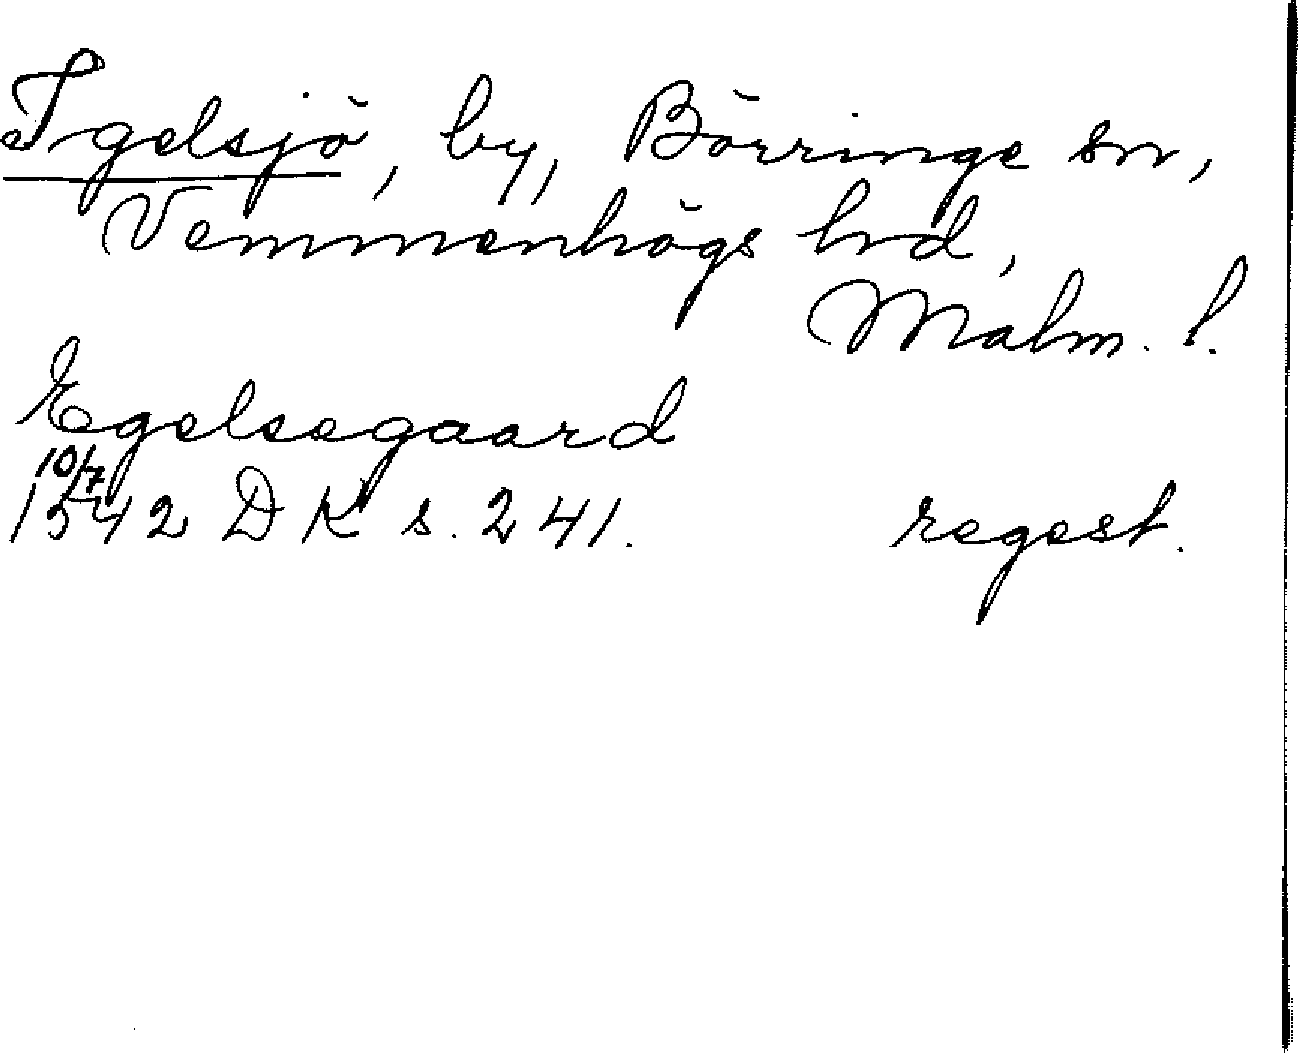 Igelsjö, by, Börringe sn,
Vemmenhögs hd,
Malm. l.
Egelsegaard
10/7
1542 DK s. 241. regest.